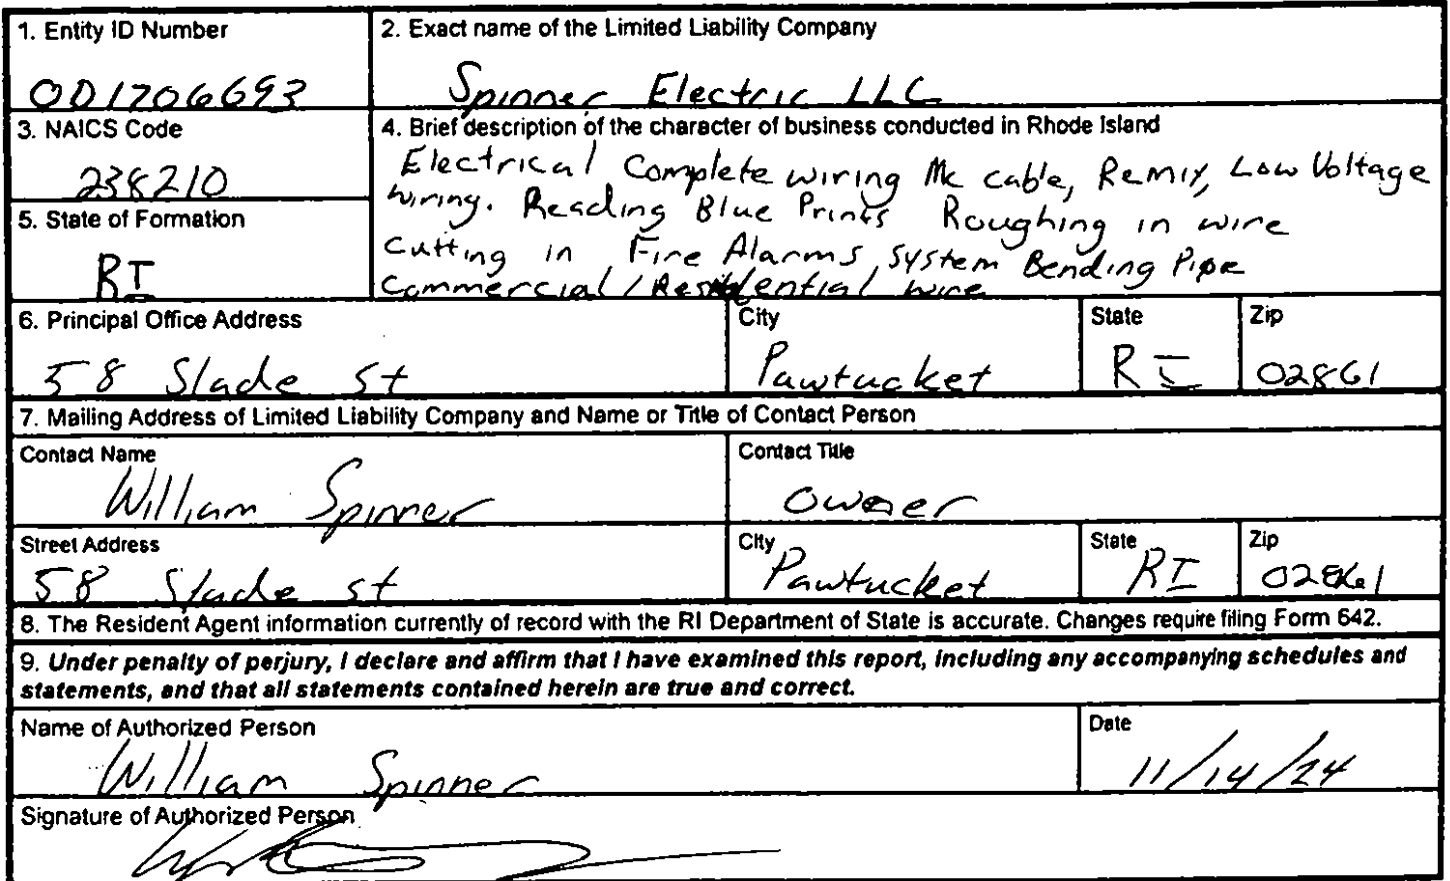 1. Entity ID Number
001706693
2. Exact name of the Limited Liability Company
Spinner Electric LLC
3. NAICS Code
238210
4. Brief description of the character of business conducted in Rhode Island
Electrical Complete wiring Mc cable, Remix, Low Voltage
wiring. Reading Blue Prints Roughing in wire
cutting in Fire Alarms system Bending Pipe
Commercial / Residential wire
5. State of Formation
RI
6. Principal Office Address
58 Slade st
City
Pawtucket
State
RI
Zip
02861
7. Mailing Address of Limited Liability Company and Name or Title of Contact Person
Contact Name
William Spinner
Contact Title
owner
Street Address
58 Slade st
City
Pawtucket
State
RI
Zip
02861
8. The Resident Agent information currently of record with the RI Department of State is accurate. Changes require filing Form 642.
9. Under penalty of perjury, I declare and affirm that I have examined this report, including any accompanying schedules and
statements, and that all statements contained herein are true and correct.
Name of Authorized Person
William Spinner
Date
11/14/24
Signature of Authorized Person